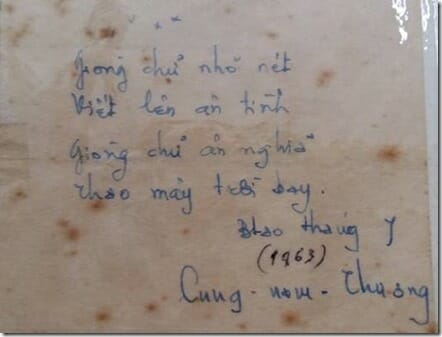 * * *
Giòng chữ nhỏ nét
Viết lên ân tình
Giòng chữ ân nghĩa
Theo mây trời bay.
tháng 7
(1963)
Cung - nam - Thương